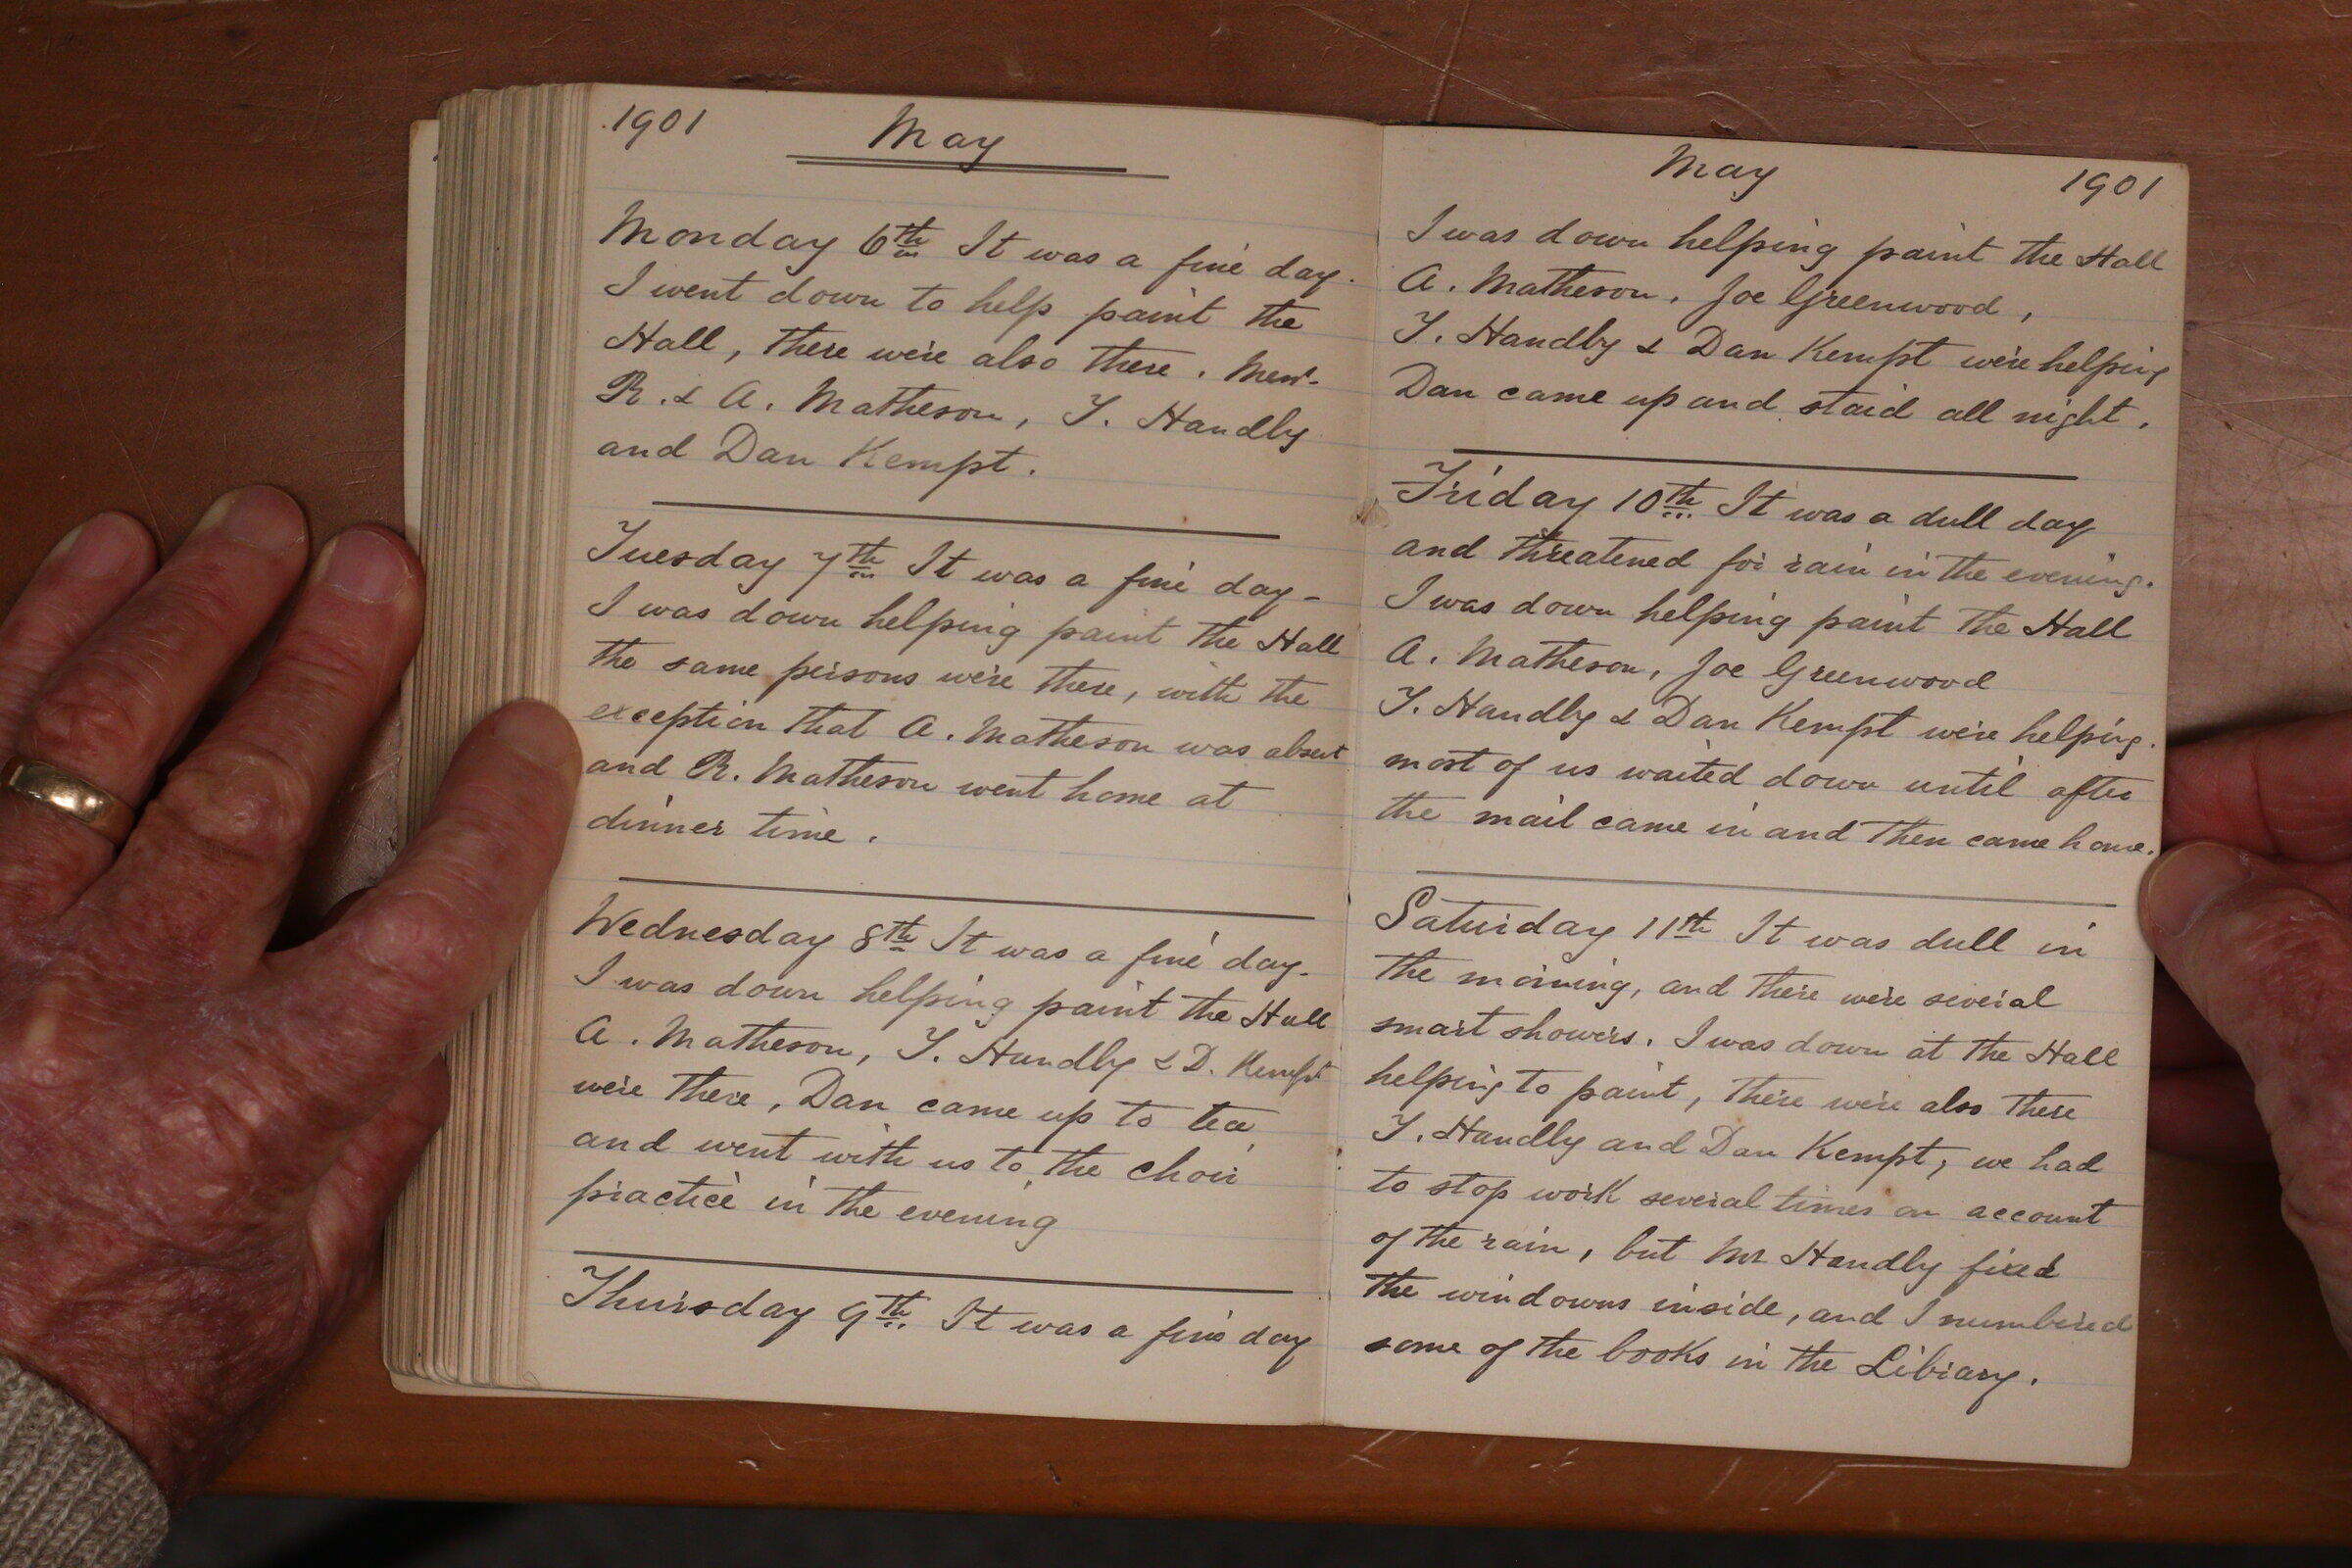 1901 May
Monday 6th It was a fine day.
I went down to help paint the
Hall, there were also there. Mesrs.
R. & A. Matheson, T. Handly
and Dan Kempt.
Tuesday 7th It was a fine day-
I was down helping paint the Hall
the same persons were there, with the
exception that A. Matheson was absent
and R. Matheson went home at
dinner time.
Wednesday 8th It was a fine day.
I was down helping paint the Hall
A. Matheson, T. Handly & D. Kempt
were there, Dan came up to tea
and went with us to the choir
practice in the evening
Thursday 9th. It was a fine day
May 1901
I was down helping paint the Hall
A. Matheson. Joe Greenwood,
T. Handly & Dan Kempt were helping
Dan came up and staid all night.
Friday 10th It was a dull day
and threatened for rain in the evening.
I was down helping paint the Hall
A. Matheson, Joe Greenwood
T. Handly & Dan Kempt were helping.
most of us waited down until after
the mail came in and then came home.
Saturday 11th It was dull in
the morning, and there were several
smart showers. I was down at the Hall
helping to paint, there were also there
T. Handly and Dan Kempt, we had
to stop work several times on account
of the rain, but Mr Handly fixed
the windows inside, and I numbered
some of the books in the Library.